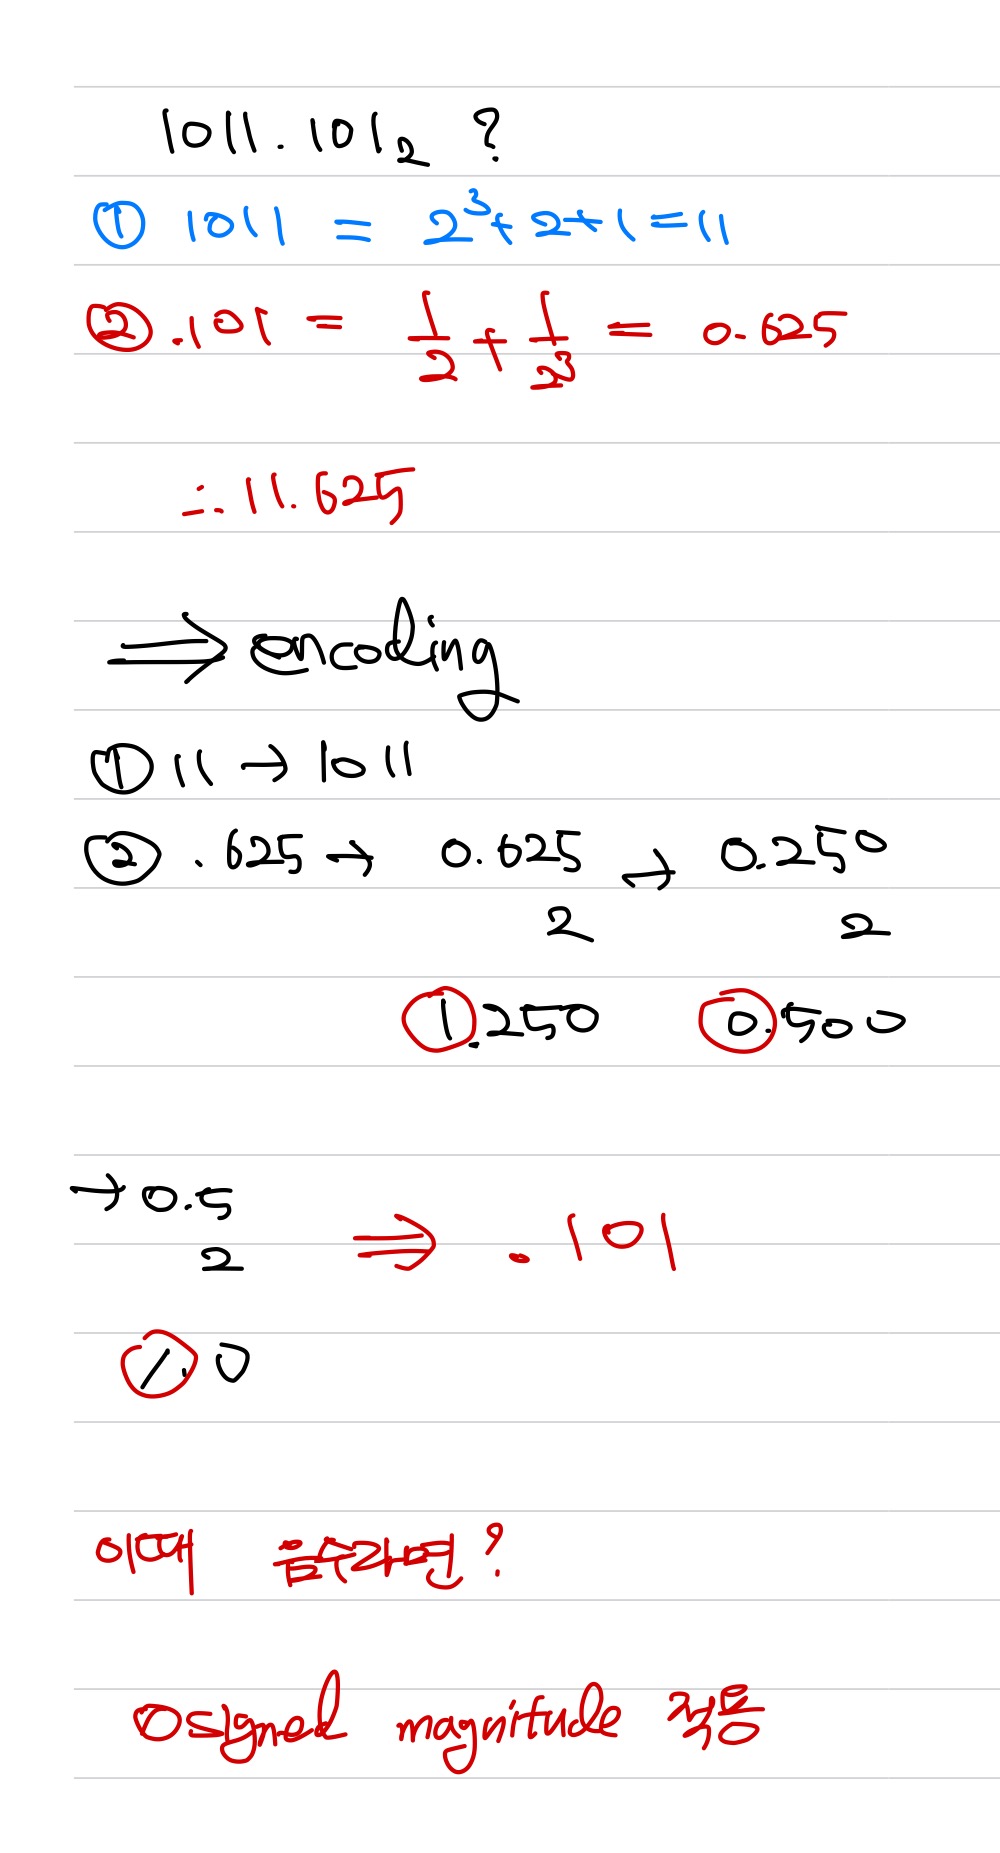 1011.101₂ ?
① 1011 = 2³+2+1=11
② .101 = 1/2 + 1/2³ = 0.625
∴ 11.625
⇒ encoding
① 11 → 1011
② .625 → 0.625 → 0.250
2 2
1.250 0.500
→ 0.5
2 ⇒ .101
1.0
이때 음수라면?
signed magnitude 적용